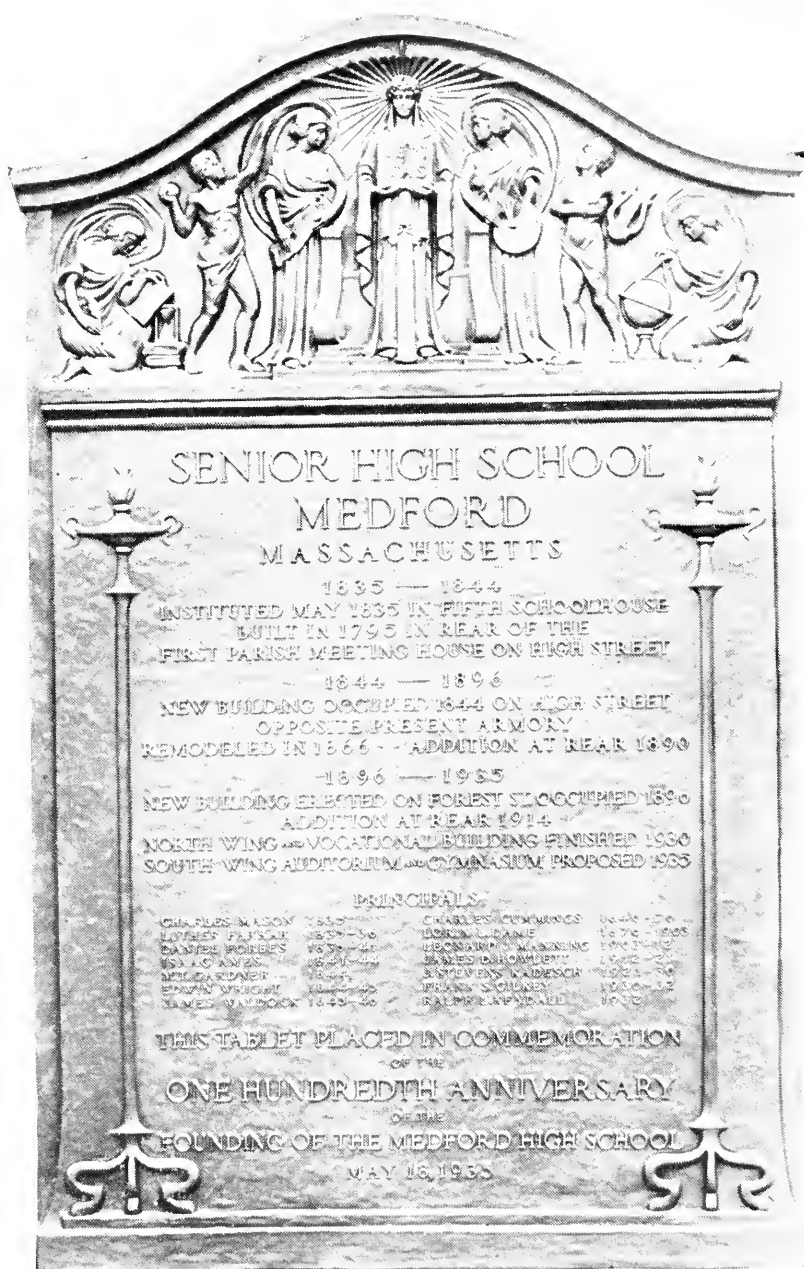 SENIOR HIGH SCHOOL
MEDFORD
MASSACHUSETTS
1835 — 1844
INSTITUTED MAY 1835 IN FIFTH SCHOOLHOUSE
BUILT IN 1795 IN REAR OF THE
FIRST PARISH MEETING HOUSE ON HIGH STREET
1844 — 1896
NEW BUILDING OCCUPIED 1844 ON HIGH STREET
OPPOSITE PRESENT ARMORY
REMODELED IN 1866 - - ADDITION AT REAR 1890
1896 — 1935
NEW BUILDING ERECTED ON FOREST ST. OCCUPIED 1896
ADDITION AT REAR 1914
NORTH WING AND VOCATIONAL BUILDING FINISHED 1930
SOUTH WING AUDITORIUM AND GYMNASIUM PROPOSED 1935
PRINCIPALS
CHARLES MASON 1835
LUTHER FARRAR
DANIEL FORBES
ISAAC AMES
GARDNER
EDWIN WRIGHT
JAMES WALDOCK
CHARLES CUMMINGS
LORIN L. DAME
LEONARD J. MANNING
JAMES D. HOWLETT
J. STEVENS KADESCH
FRANK S. GILKEY
RALPH KENDALL 1932
THIS TABLET PLACED IN COMMEMORATION
OF THE
ONE HUNDREDTH ANNIVERSARY
OF THE
FOUNDING OF THE MEDFORD HIGH SCHOOL
MAY 16, 1935